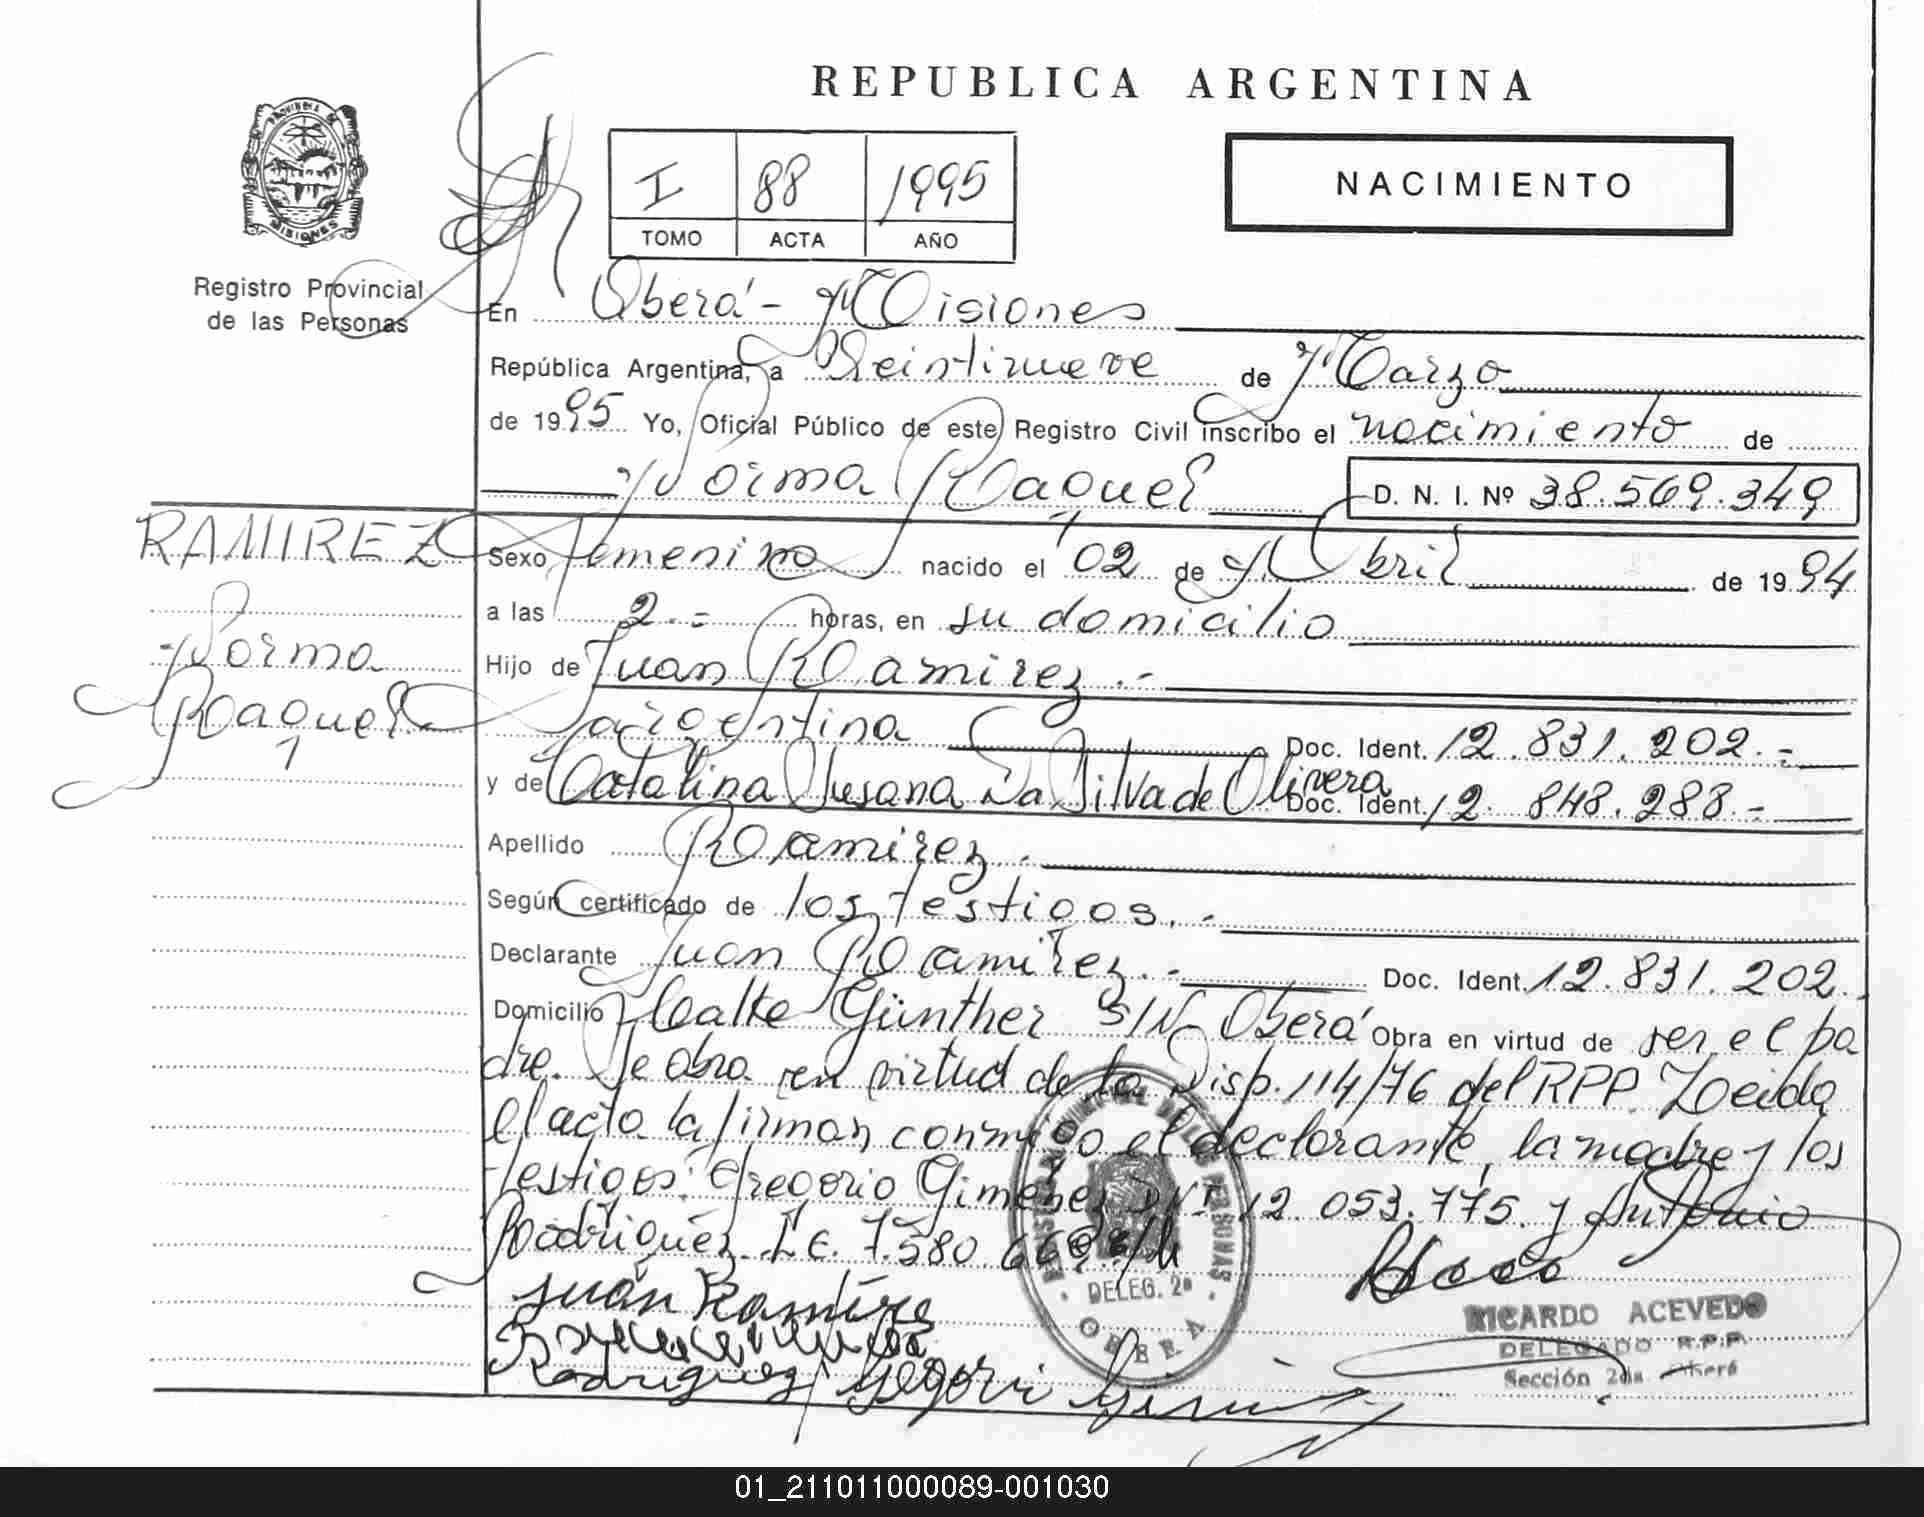 REPUBLICA ARGENTINA
I 88 1995
TOMO ACTA AÑO
NACIMIENTO
PROVINCIA DE
MISIONES
Registro Provincial
de las Personas
En Oberá - Misiones
República Argentina, a Veintinueve de Marzo
de 1995 Yo, Oficial Público de este Registro Civil inscribo el nacimiento de
Norma Raquel D. N. I. Nº 38.569.349
RAMIREZ
Norma
Raquel
Sexo femenino nacido el 02 de Abril de 1994
a las 2.= horas, en su domicilio
Hijo de Juan Ramirez.-
argentina Doc. Ident. 12.831.202.=
y de Catalina Susana Da Silva de Olivera Doc. Ident. 12.848.288.-
Apellido Ramirez.
Según certificado de los testigos.-
Declarante Juan Ramirez.- Doc. Ident. 12.831.202.
Domicilio Calle Günther S/N- Oberá Obra en virtud de ser el pa
dre. Se obra en virtud de la Disp. 114/76 del RPP. Leida
el acta la firman conmigo el declarante, la madre y los
testigos: Gregorio Gimenez DNI 12.053.775. y Antonio
Rodriguez L.E. 7.580.
Juan Ramirez
Rodriguez
DELEG. 2ª
OBERA
RICARDO ACEVEDO
DELEGADO R.P.P.
Sección 2da Oberá
01_211011000089-001030